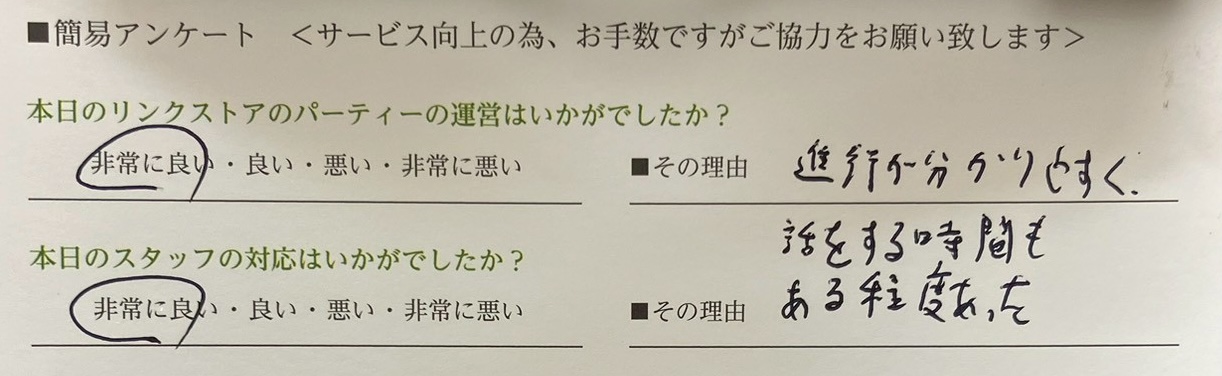 ■簡易アンケート <サービス向上の為、お手数ですがご協力をお願い致します>
本日のリンクストアのパーティーの運営はいかがでしたか？
非常に良い・良い・悪い・非常に悪い ■その理由 進行が分かりやすく、
話をする時間も
本日のスタッフの対応はいかがでしたか？
非常に良い・良い・悪い・非常に悪い ■その理由 ある程度あった